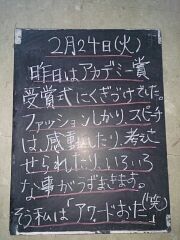 2月24日(火)
昨日はアカデミー賞
受賞式にくぎづけでした。
ファッションしかり、スピーチ
は、感動したり、考えさ
せられたり、いろいろ
な事がうずまきます。
そう私は「アワードおた」(笑)